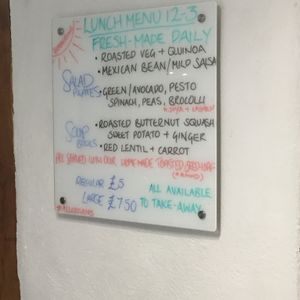 LUNCH MENU 12-3
FRESH-MADE DAILY
• ROASTED VEG + QUINOA
• MEXICAN BEAN/MILD SALSA
SALAD
PLATES
• GREEN/AVOCADO, PESTO
SPINACH, PEAS, BROCOLLI
SOUP
BOWLS
• ROASTED BUTTERNUT SQUASH
SWEET POTATO + GINGER
• RED LENTIL + CARROT
ALL SERVED WITH OUR HOMEMADE TOASTED
REGULAR £5
LARGE £7.50
ALL AVAILABLE
TO TAKE-AWAY